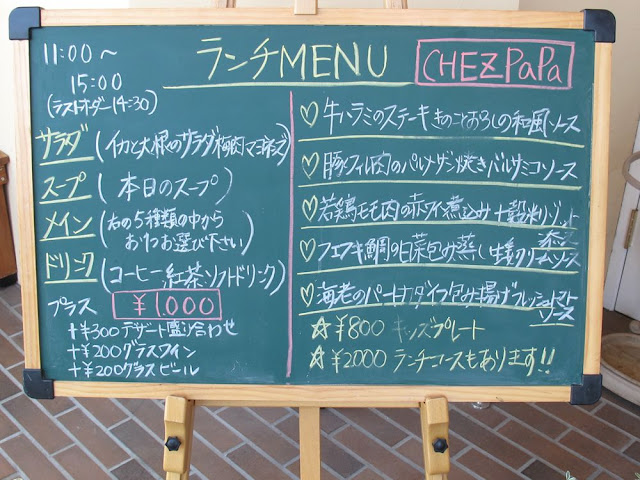 11:00～
15:00
(ラストオーダー14:30)
ランチMENU
CHEZ PaPa
サラダ (イカと大根のサラダ梅肉マヨネーズ)
スープ (本日のスープ)
メイン (右の5種類の中から
お1つお選び下さい)
ドリンク (コーヒー紅茶ソフトドリンク)
プラス ¥1,000
+¥300 デザート盛り合わせ
+¥200 グラスワイン
+¥200 グラスビール
♡牛ハラミのステーキきのことおろしの和風ソース
♡豚フィレ肉のパルメザン焼きバルサミコソース
♡若鶏モモ肉の赤ワイン煮込み十穀米リゾット
添え
♡フエフキ鯛の白菜包み蒸し生姜クリームソース
♡海老のパートブリック包み揚げフレッシュトマト
ソース
☆¥800 キッズプレート
☆¥2000 ランチコースもあります!!